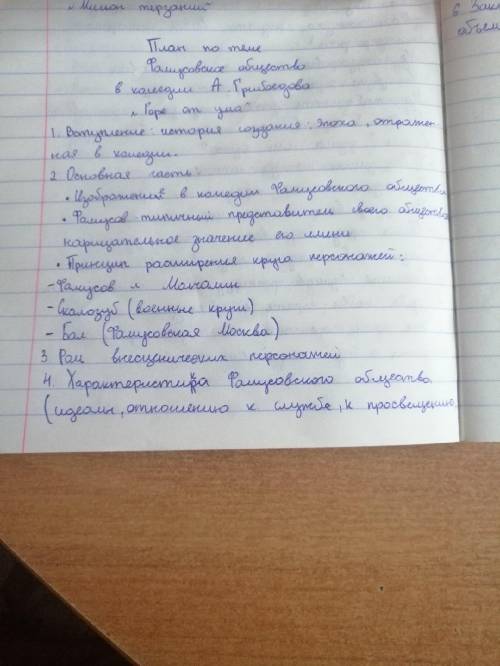 „Мильон терзаний"
6 Зак
объем
План по теме
Фамусовское общество
в комедии А. Грибоедова
„Горе от ума"
1. Вступление: история создания. эпоха, отражен-
ная в комедии.
2 Основная часть:
• Изображение в комедии Фамусовского общества
• Фамусов типичный представитель своего общества
нарицательное значение его имени
• Принцип расширения круга персонажей:
- Фамусов и Молчалин
- Скалозуб (военные круги)
- Бал (Фамусовская Москва)
3 Роль внесценических персонажей
4. Характеристика Фамусовского общества
(идеалы, отношению к службе, к просвещению,